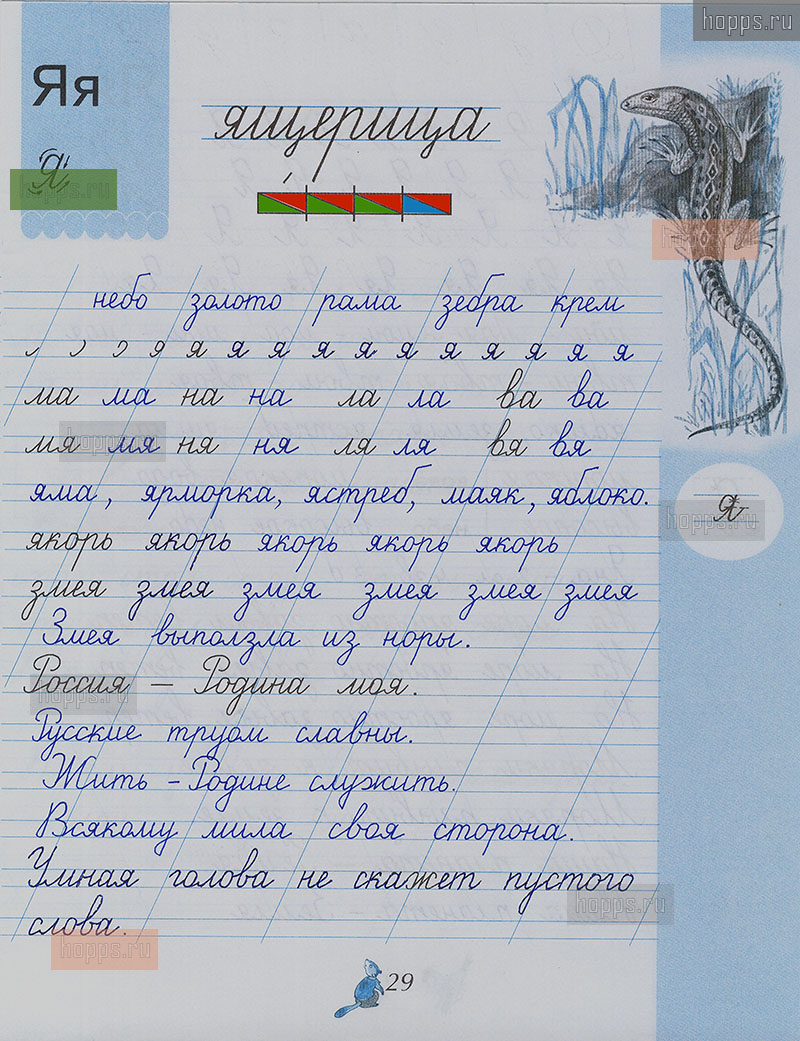 hopps.ru
Яя
я
hopps.ru
ящерица
hopps.ru
небо золото рама зебра крем
я я я я я я я я я я я
ма ма на на ла ла ва ва
мя мя ня ня ля ля вя вя
hopps.ru
яма, ярморка, ястреб, маяк, яблоко.
я
hopps.ru
якорь якорь якорь якорь якорь
змея змея змея змея змея змея
Змея выползла из норы.
Россия — Родина моя.
hopps.ru
Русские трудом славны.
Жить - Родине служить.
Всякому мила своя сторона.
Умная голова не скажет пустого
hopps.ru
слова.
hopps.ru
29